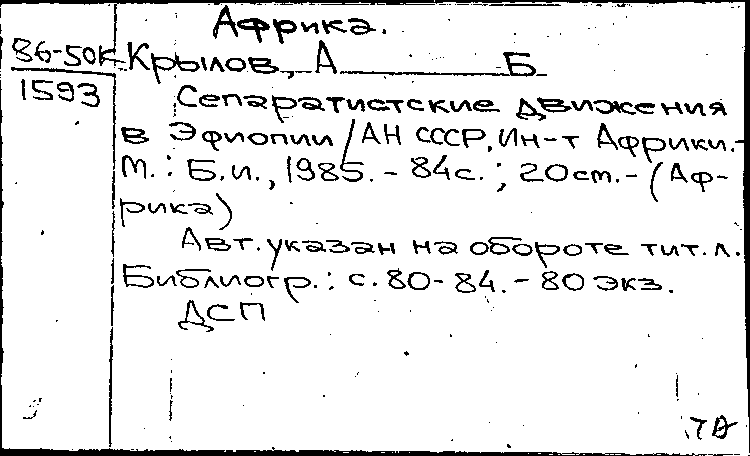 Африка.
86-50К Крылов, А______Б__
1593 Сепаратистские движения
в Эфиопии / АН СССР, Ин-т Африки.-
М.: Б.и., 1985.- 84с.; 20см.- (Аф-
рика)
Авт. указан на обороте тит. л.
Библиогр.: с. 80-84.- 80 экз.
ДСП